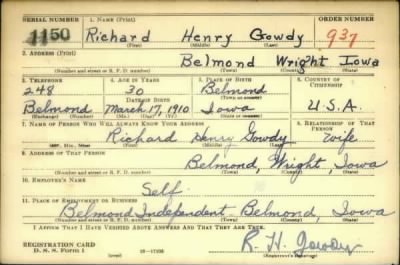 SERIAL NUMBER 1. NAME (Print) ORDER NUMBER
1150 Richard Henry Gowdy 937
(First) (Middle) (Last)
2. ADDRESS (Print)
Belmond Wright Iowa
(Number and street or R. F. D. number) (Town) (County) (State)
3. TELEPHONE 4. AGE IN YEARS 5. PLACE OF BIRTH 6. COUNTRY OF CITIZENSHIP
248 30 Belmond
DATE OF BIRTH (Town or county)
Belmond March 17, 1910 Iowa U.S.A.
(Exchange) (Number) (Mo.) (Day) (Yr.) (State or country)
7. NAME OF PERSON WHO WILL ALWAYS KNOW YOUR ADDRESS 8. RELATIONSHIP OF THAT PERSON
Richard Henry Gowdy wife
(Mr., Mrs., Miss) (First) (Middle) (Last)
9. ADDRESS OF THAT PERSON
Belmond, Wright, Iowa
(Number and street or R. F. D. number) (Town) (County) (State)
10. EMPLOYER'S NAME
Self
11. PLACE OF EMPLOYMENT OR BUSINESS
Belmond Independent Belmond, Iowa
(Number and street or R. F. D. number) (Town) (County) (State)
I AFFIRM THAT I HAVE VERIFIED ABOVE ANSWERS AND THAT THEY ARE TRUE.
REGISTRATION CARD
D. S. S. Form 1 (over) R. H. Gowdy
(Registrant's signature)